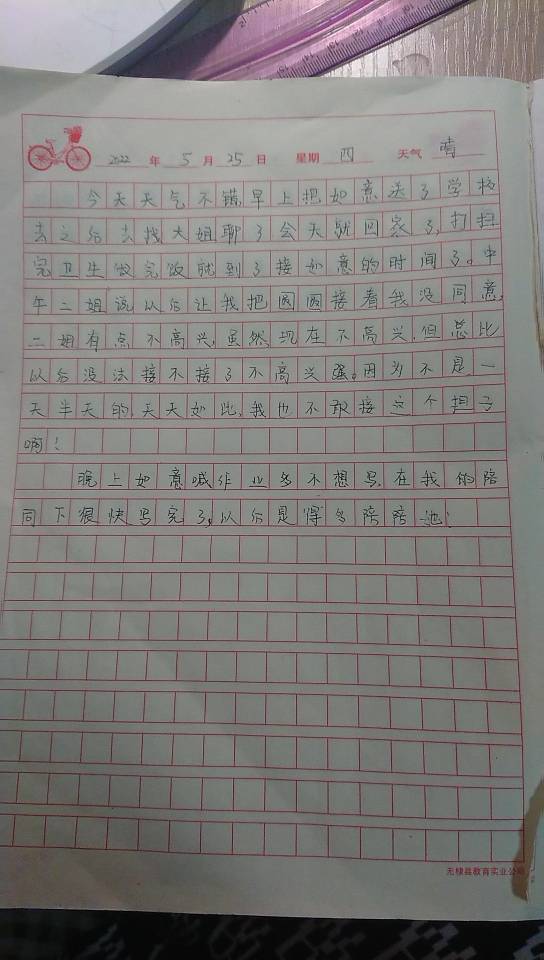 2022 年 5 月 25 日 星期 四 天气 晴
今天天气不错,早上把如意送了学校
去之后去找大姐聊了会天就回家了,打扫
完卫生做完饭就到了接如意的时间了。中
午二姐说以后让我把圆圆接着我没同意,
二姐有点不高兴,虽然现在不高兴,但总比
以后没法接不接了不高兴强。因为不是一
天半天的,天天如此,我也不敢接这个担子
啊!
晚上如意喊作业多不想写,在我的陪
同下很快写完了,以后是得多陪陪她!
无棣县教育实业公司